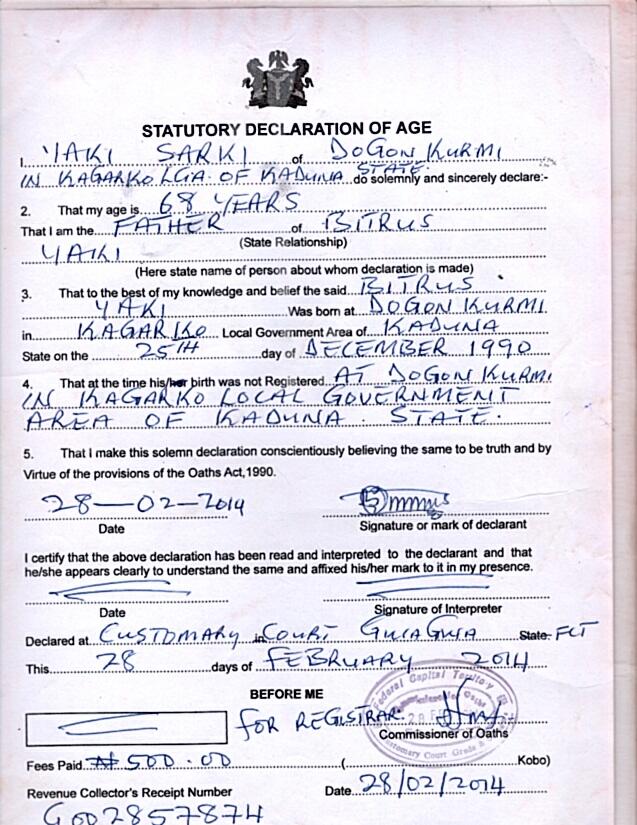 STATUTORY DECLARATION OF AGE
I YAKI SARKI of DOGON KURMI
IN KAGARKO LGA. OF KADUNA STATE. do solemnly and sincerely declare:-
2. That my age is 68 YEARS
That I am the FATHER of BITRUS
(State Relationship)
YAKI
(Here state name of person about whom declaration is made)
3. That to the best of my knowledge and belief the said BITRUS
YAKI Was born at DOGON KURMI
in KAGARKO Local Government Area of KADUNA
State on the 25TH day of DECEMBER 1990
4. That at the time his/her birth was not Registered AT DOGON KURMI
IN KAGARKO LOCAL GOVERNMENT
AREA OF KADUNA STATE.
5. That I make this solemn declaration conscientiously believing the same to be truth and by
Virtue of the provisions of the Oaths Act, 1990.
28-02-2014
Date
Signature or mark of declarant
I certify that the above declaration has been read and interpreted to the declarant and that
he/she appears clearly to understand the same and affixed his/her mark to it in my presence.
Date
Signature of Interpreter
Declared at CUSTOMARY in COURT GWAGWA State FCT
This 28 days of FEBRUARY 2014
BEFORE ME
Federal Capital Territory
FOR REGISTRAR.
Commissioner of Oaths
Customary Court Grade
Fees Paid ₦500.00 ( Kobo)
Revenue Collector's Receipt Number Date 28/02/2014
G002857874